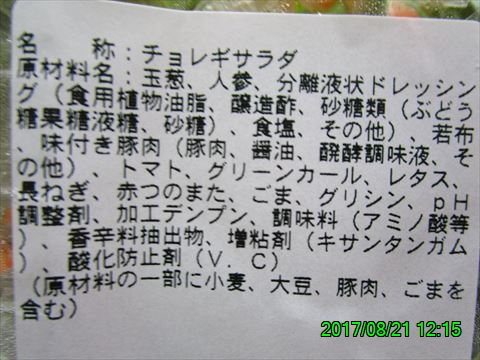 名　　　称：チョレギサラダ
原材料名：玉葱、人参、分離液状ドレッシン
グ（食用植物油脂、醸造酢、砂糖類（ぶどう
糖果糖液糖、砂糖）、食塩、その他）、若布
、味付き豚肉（豚肉、醤油、醗酵調味液、そ
の他）、トマト、グリーンカール、レタス、
長ねぎ、赤つのまた、ごま、グリシン、ｐＨ
調整剤、加工デンプン、調味料（アミノ酸等
）、香辛料抽出物、増粘剤（キサンタンガム
）、酸化防止剤（Ｖ．Ｃ）
（原材料の一部に小麦、大豆、豚肉、ごまを
含む）
2017/08/21 12:15